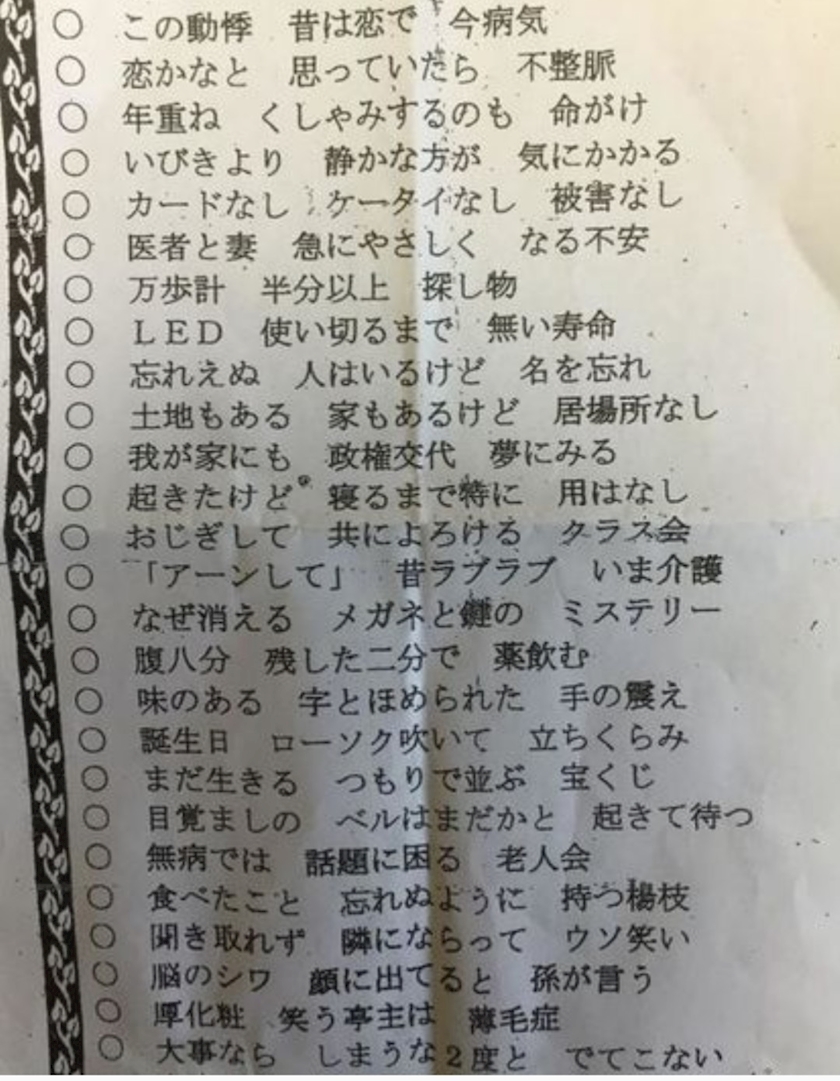 ○ この動悸 昔は恋で 今病気
○ 恋かなと 思っていたら 不整脈
○ 年重ね くしゃみするのも 命がけ
○ いびきより 静かな方が 気にかかる
○ カードなし ケータイなし 被害なし
○ 医者と妻 急にやさしく なる不安
○ 万歩計 半分以上 探し物
○ LED 使い切るまで 無い寿命
○ 忘れえぬ 人はいるけど 名を忘れ
○ 土地もある 家もあるけど 居場所なし
○ 我が家にも 政権交代 夢にみる
○ 起きたけど 寝るまで特に 用はなし
○ おじぎして 共によろける クラス会
○ 「アーンして」 昔ラブラブ いま介護
○ なぜ消える メガネと鍵の ミステリー
○ 腹八分 残した二分で 薬飲む
○ 味のある 字とほめられた 手の震え
○ 誕生日 ローソク吹いて 立ちくらみ
○ まだ生きる つもりで並ぶ 宝くじ
○ 目覚ましの ベルはまだかと 起きて待つ
○ 無病では 話題に困る 老人会
○ 食べたこと 忘れぬように 持つ楊枝
○ 聞き取れず 隣にならって ウソ笑い
○ 脳のシワ 顔に出てると 孫が言う
○ 厚化粧 笑う亭主は 薄毛症
○ 大事なら しまうな2度と でてこない